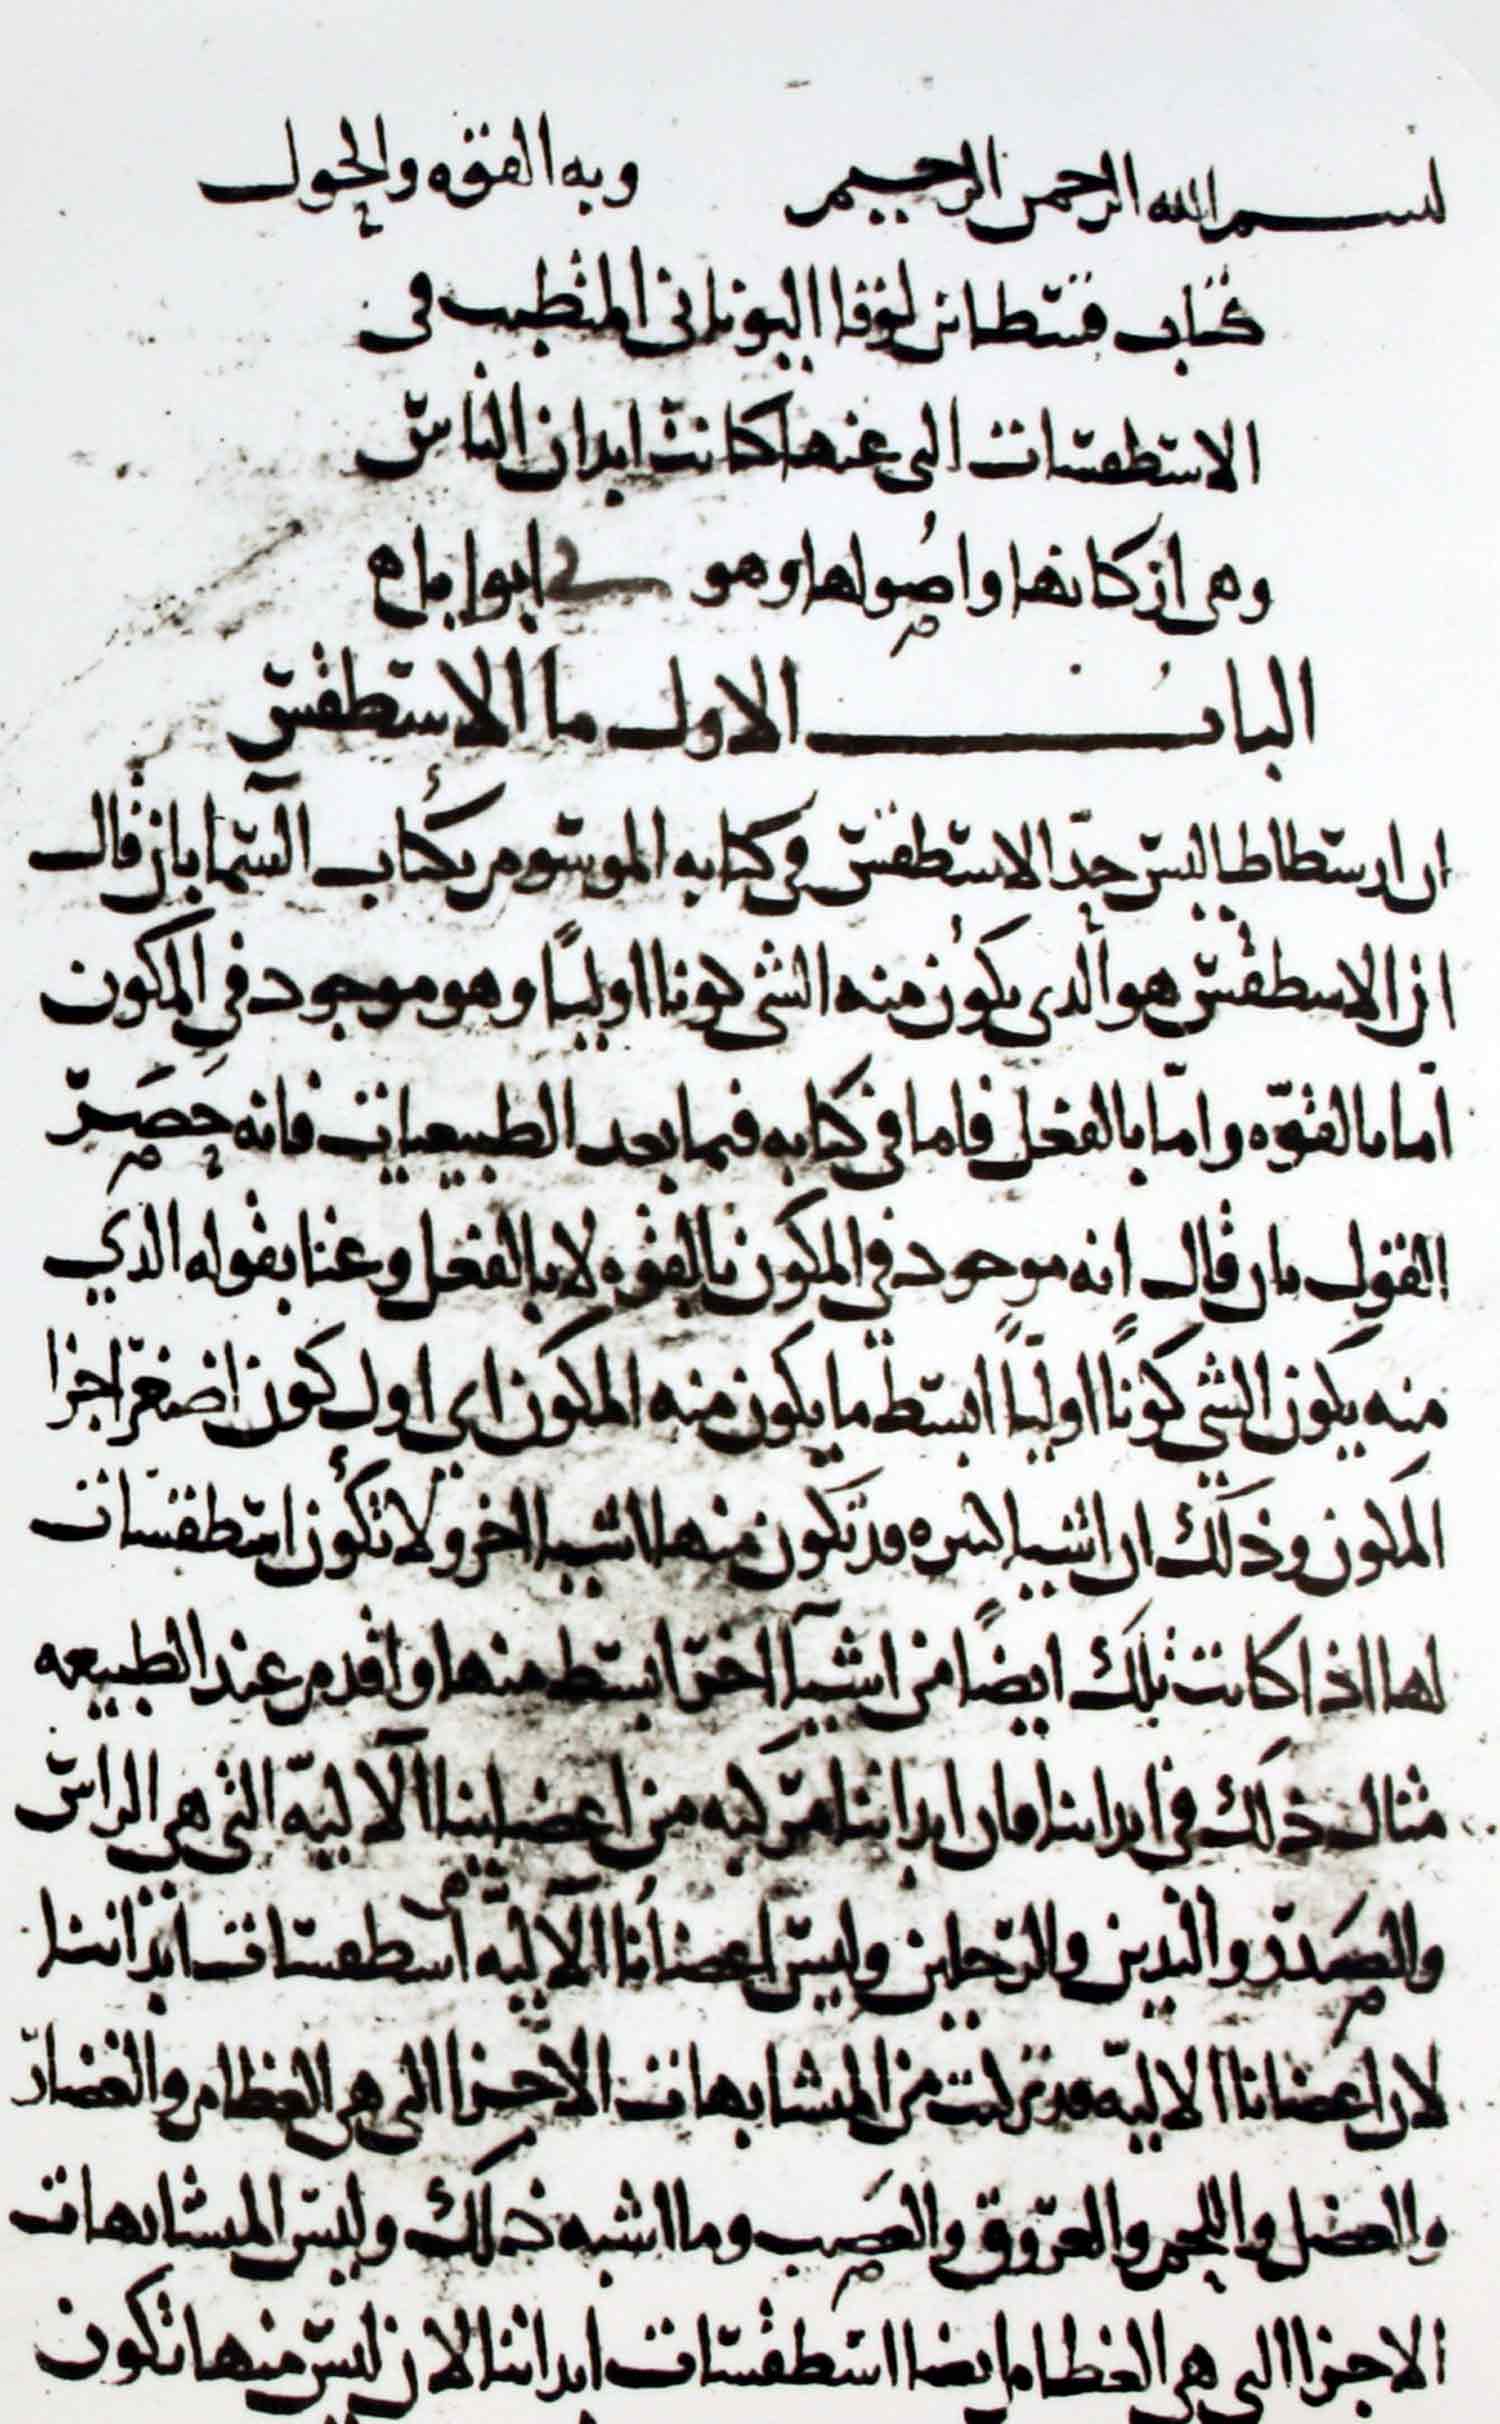 بسم الله الرحمن الرحيم وبه القوه والحول
كتاب قسطا بن لوقا اليوناني المتطبب في
الاستطقسات التي عنها كانت ابدان الناس
وهي اركانها واصولها وهو ابوابا
الباب الاول ما الاستطقس
ان ارسطاطاليس حدّ الاستطقس في كتابه الموسوم بكتاب السما بان قال
ان الاسطقس هو الذي يكون منه الشي كونا اوليًا وهو موجود في المكون
اما بالقوّه وامّا بالفعل فاما في كتابه فيما بعد الطبيعيات فانه حَصَر
القول بان قال انه موجود في المكون بالقوه لا بالفعل وعنا بقوله الذي
منه يكون الشي كونًا اوليًا ابسط ما يكون منه المكون اي اول كون اصغر اجزا
المكون وذلك ان اشيا كثيره قد تكون منها اشيا اخر ولا تكون استطقسات
لها اذا كانت تلك ايضًا من اشيآ اخر ابسط منها واقدم عند الطبيعه
مثال ذلك في ابداننا فان ابداننا مركبه من اعضاينا الآليّه التي هي الراس
والصدر واليدين والرجلين وليس اعضاُنا الآليّه اسطقسات ابداننا
لان اعضانا الاليّه قد تركبت من المتشابهات الاجزا التي هي العظام والغضار
والعضل واللحم والعروق والعصب وما اشبه ذلك وليس المتشابهات
الاجزا التي هي العظام ايضا استطقسات ابداننا لان ليس منها تكون